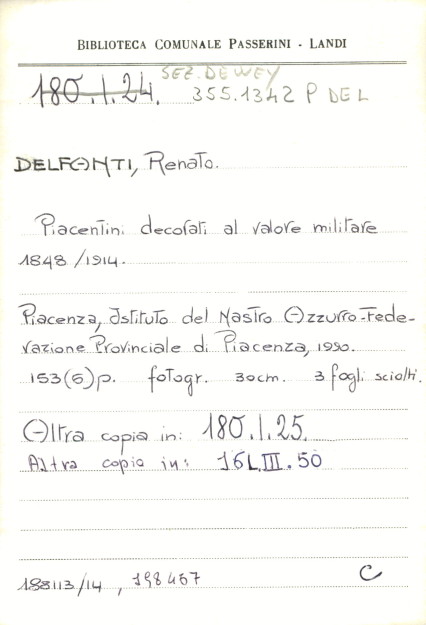 BIBLIOTECA COMUNALE PASSERINI - LANDI
SEZ. DEWEY
180.I.24. 355.1342 P DEL
DELFANTI, Renato.
Piacentini decorati al valore militare
1848/1914.
Piacenza, Istituto del Nastro Azzurro-Fede-
razione Provinciale di Piacenza, 1990.
153(5)p. fotogr. 30cm. 3 fogli sciolti.
Altra copia in: 180.I.25.
Altra copia in: 16L.III.50
188113/14, 198467
C